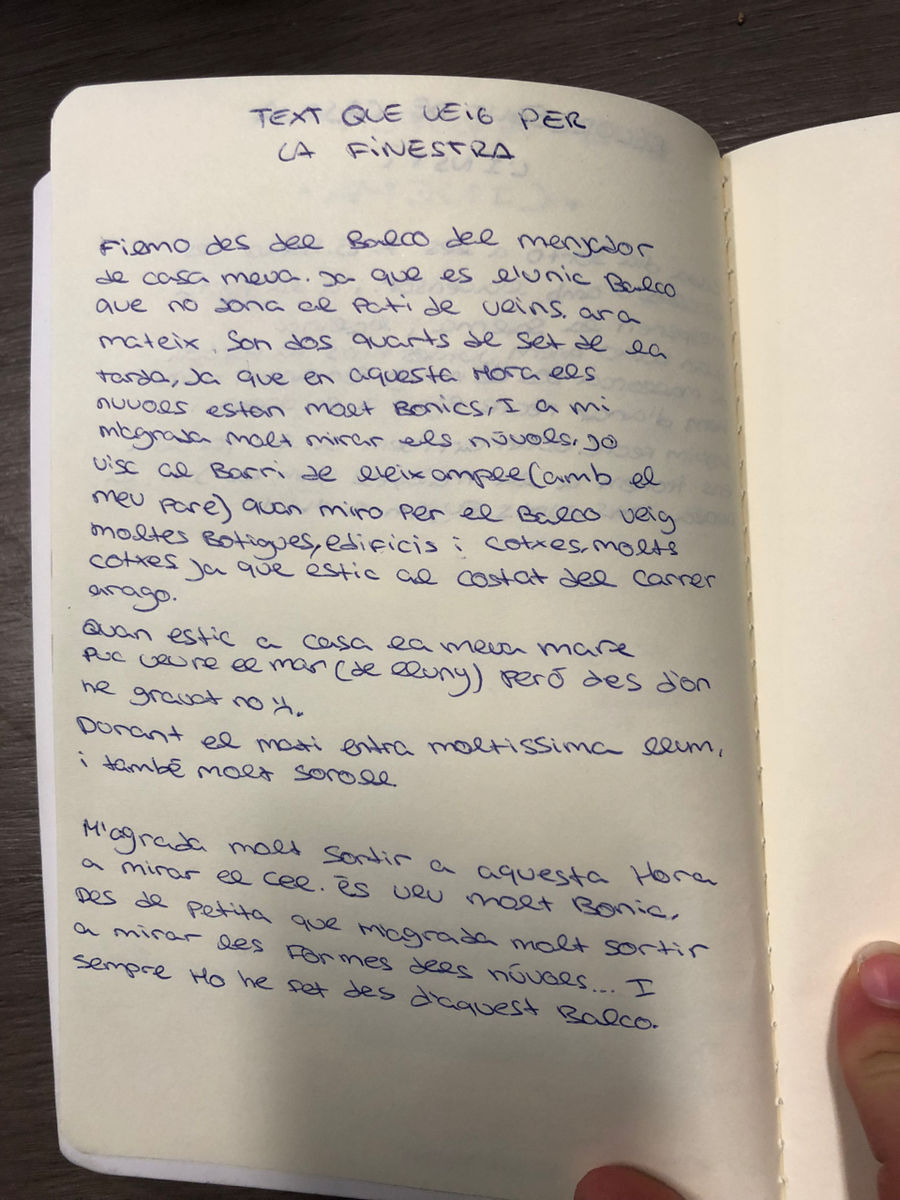 TEXT QUE VEIG PER
LA FINESTRA
Filmo des del Balco del menjador
de casa meva. Ja que es l'unic Balco
que no dona al Pati de veins. ara
mateix. Son dos quarts de set de la
tarda, Ja que en aquesta Hora els
nuvols estan molt Bonics, I a mi
m'agrada molt mirar els núvols, jo
visc al Barri de l'eixample (amb el
meu pare) quan miro per el Balco veig
moltes Botigues, edificis i cotxes, molts
cotxes Ja que estic al costat del carrer
arago.
Quan estic a casa la meva mare
puc veure el mar (de lluny) peró des d'on
he gravat no :(.
Durant el mati entra moltissima llum,
i també molt soroll.
M'agrada molt Sortir a aquesta Hora
a mirar el cel. és veu molt Bonic,
Des de petita que m'agrada molt sortir
a mirar les Formes dels núvols... I
sempre Ho he fet des d'aquest Balco.